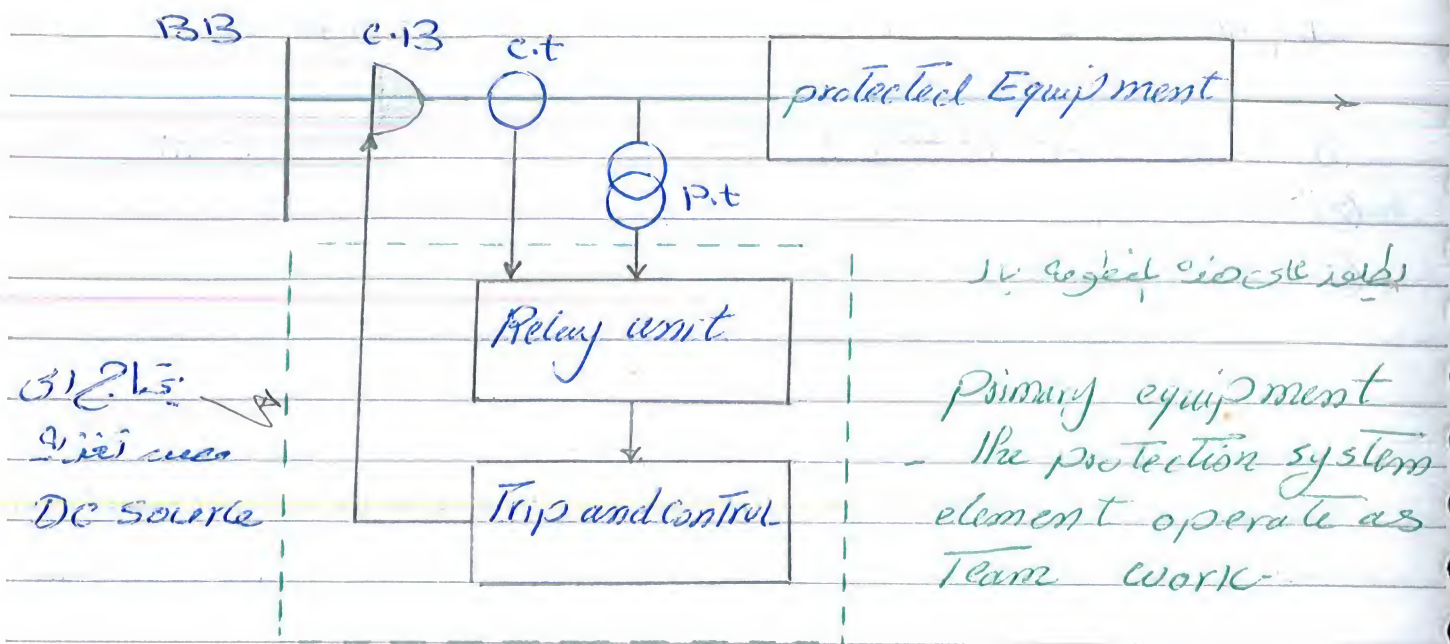 BB
C.B
C.t
protected Equipment
P.t
Relay unit
Trip and control
يحتاج الى
مصدر تغذية
DC Source
على هذه المنظومة بال
primary equipment
- The protection system
element operate as
Team work-